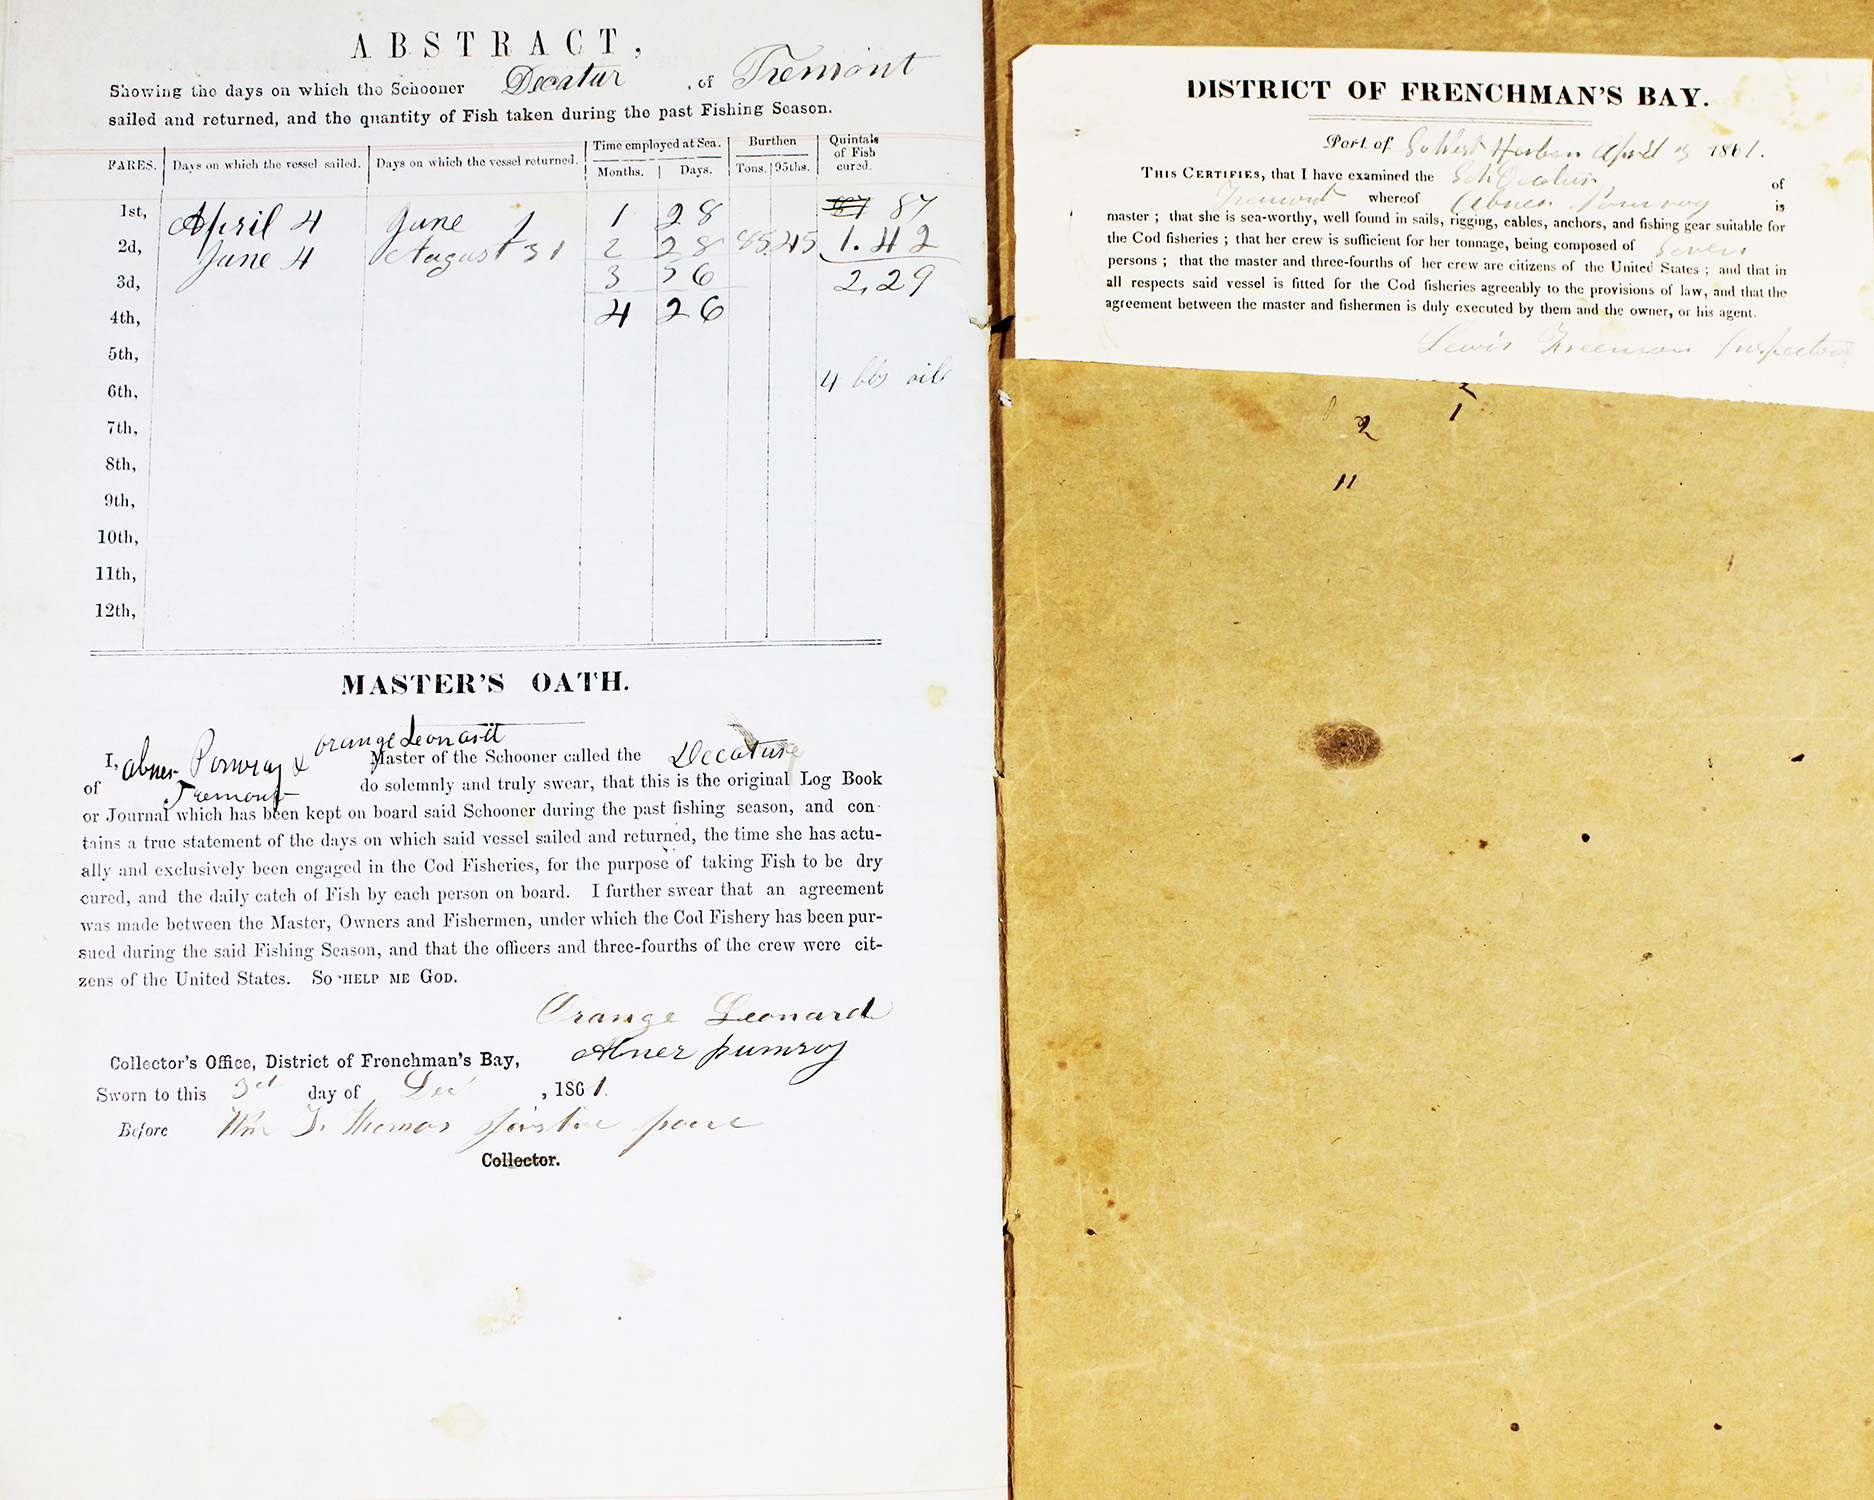 ABSTRACT,
Showing the days on which the Schooner Decatur , of Tremont
sailed and returned, and the quantity of Fish taken during the past Fishing Season.
FARES. Days on which the vessel sailed. Days on which the vessel returned. Time employed at Sea. Months. Days. Burthen Tons. 95ths. Quintals of Fish cured.
1st, April 4 June 1 1 28 87
2d, June 4 August 31 2 28 85 45 1.42
3d, 3 56 2,29
4th, 4 26
5th,
6th, 4 bbs oil
7th,
8th,
9th,
10th,
11th,
12th,
MASTER'S OATH.
I, Abner Pomroy & orange Leonard Master of the Schooner called the Decature
of Tremont do solemnly and truly swear, that this is the original Log Book
or Journal which has been kept on board said Schooner during the past fishing season, and con-
tains a true statement of the days on which said vessel sailed and returned, the time she has actu-
ally and exclusively been engaged in the Cod Fisheries, for the purpose of taking Fish to be dry
cured, and the daily catch of Fish by each person on board. I further swear that an agreement
was made between the Master, Owners and Fishermen, under which the Cod Fishery has been pur-
sued during the said Fishing Season, and that the officers and three-fourths of the crew were cit-
zens of the United States. SO HELP ME GOD.
Orange Leonard
Abner pumroy
Collector's Office, District of Frenchman's Bay,
Sworn to this 3d day of Dec , 1861.
Before Wm T. Thomas justice peace
Collector.
DISTRICT OF FRENCHMAN'S BAY.
Port of So West Harbor April 3 1861.
THIS CERTIFIES, that I have examined the Sch Decatur of
Tremont whereof Abner Pomroy is
master ; that she is sea-worthy, well found in sails, rigging, cables, anchors, and fishing gear suitable for
the Cod fisheries ; that her crew is sufficient for her tonnage, being composed of Seven
persons ; that the master and three-fourths of her crew are citizens of the United States ; and that in
all respects said vessel is fitted for the Cod fisheries agreeably to the provisions of law, and that the
agreement between the master and fishermen is duly executed by them and the owner, or his agent.
Lewis Freeman Inspector
2 1
11